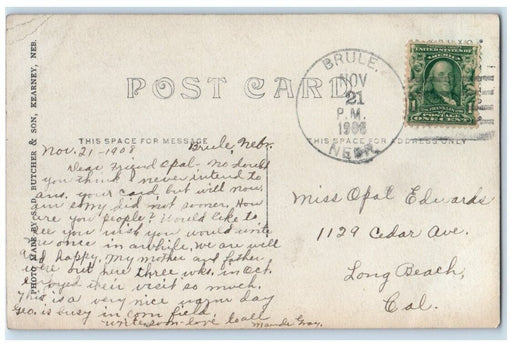 POST CARD
THIS SPACE FOR MESSAGE
THIS SPACE FOR ADDRESS ONLY
PHOTO MADE BY S.D. BUTCHER & SON, KEARNEY, NEB.
BRULE,
NOV
21
P.M.
1908
NEBR.
UNITED STATES OF AMERICA
POSTAGE
ONE CENT
Nov. 21-1908 Brule, Nebr.
Dear Friend Opal - No doubt
you think I never intend to
ans. your card but will now,
am sorry did not sooner. How
are you people? Would like to
see you wish you would write
me once in awhile. We are well
and happy. My mother and father
were out here three wks. in Oct.
Enjoyed their visit so much.
This is a very nice warm day
Geo. is busy in corn field.
write soon - love to all
Maude Gray.
Miss Opal Edwards
1129 Cedar Ave.
Long Beach,
Cal.